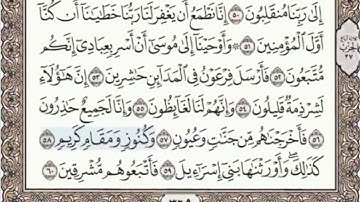 إِلَىٰ رَبِّنَا مُنقَلِبُونَ ﴿٥٠﴾ إِنَّا نَطْمَعُ أَن يَغْفِرَ لَنَا رَبُّنَا خَطَٰيَٰنَآ أَن كُنَّآ
أَوَّلَ ٱلْمُؤْمِنِينَ ﴿٥١﴾ وَأَوْحَيْنَآ إِلَىٰ مُوسَىٰٓ أَنْ أَسْرِ بِعِبَادِىٓ إِنَّكُم
مُّتَّبَعُونَ ﴿٥٢﴾ فَأَرْسَلَ فِرْعَوْنُ فِى ٱلْمَدَآئِنِ حَٰشِرِينَ ﴿٥٣﴾ إِنَّ هَٰٓؤُلَآءِ
لَشِرْذِمَةٌ قَلِيلُونَ ﴿٥٤﴾ وَإِنَّهُمْ لَنَا لَغَآئِظُونَ ﴿٥٥﴾ وَإِنَّا لَجَمِيعٌ حَٰذِرُونَ
﴿٥٦﴾ فَأَخْرَجْنَٰهُم مِّن جَنَّٰتٍ وَعُيُونٍ ﴿٥٧﴾ وَكُنُوزٍ وَمَقَامٍ كَرِيمٍ ﴿٥٨﴾
كَذَٰلِكَ وَأَوْرَثْنَٰهَا بَنِىٓ إِسْرَٰٓءِيلَ ﴿٥٩﴾ فَأَتْبَعُوهُم مُّشْرِقِينَ ﴿٦٠﴾